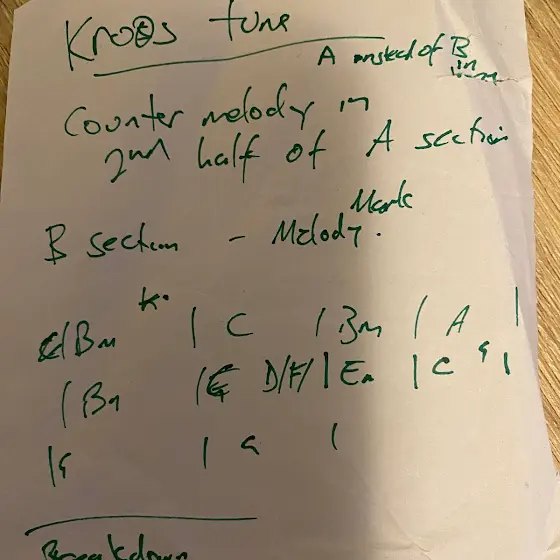 Kroos tune
A instead of B in
Counter melody in
2nd half of A section
Mark
B section - Melody.
K.
| Bm | C | Bm | A |
| Bm | D/F# | Em | C G |
| G | G |
Breakdown